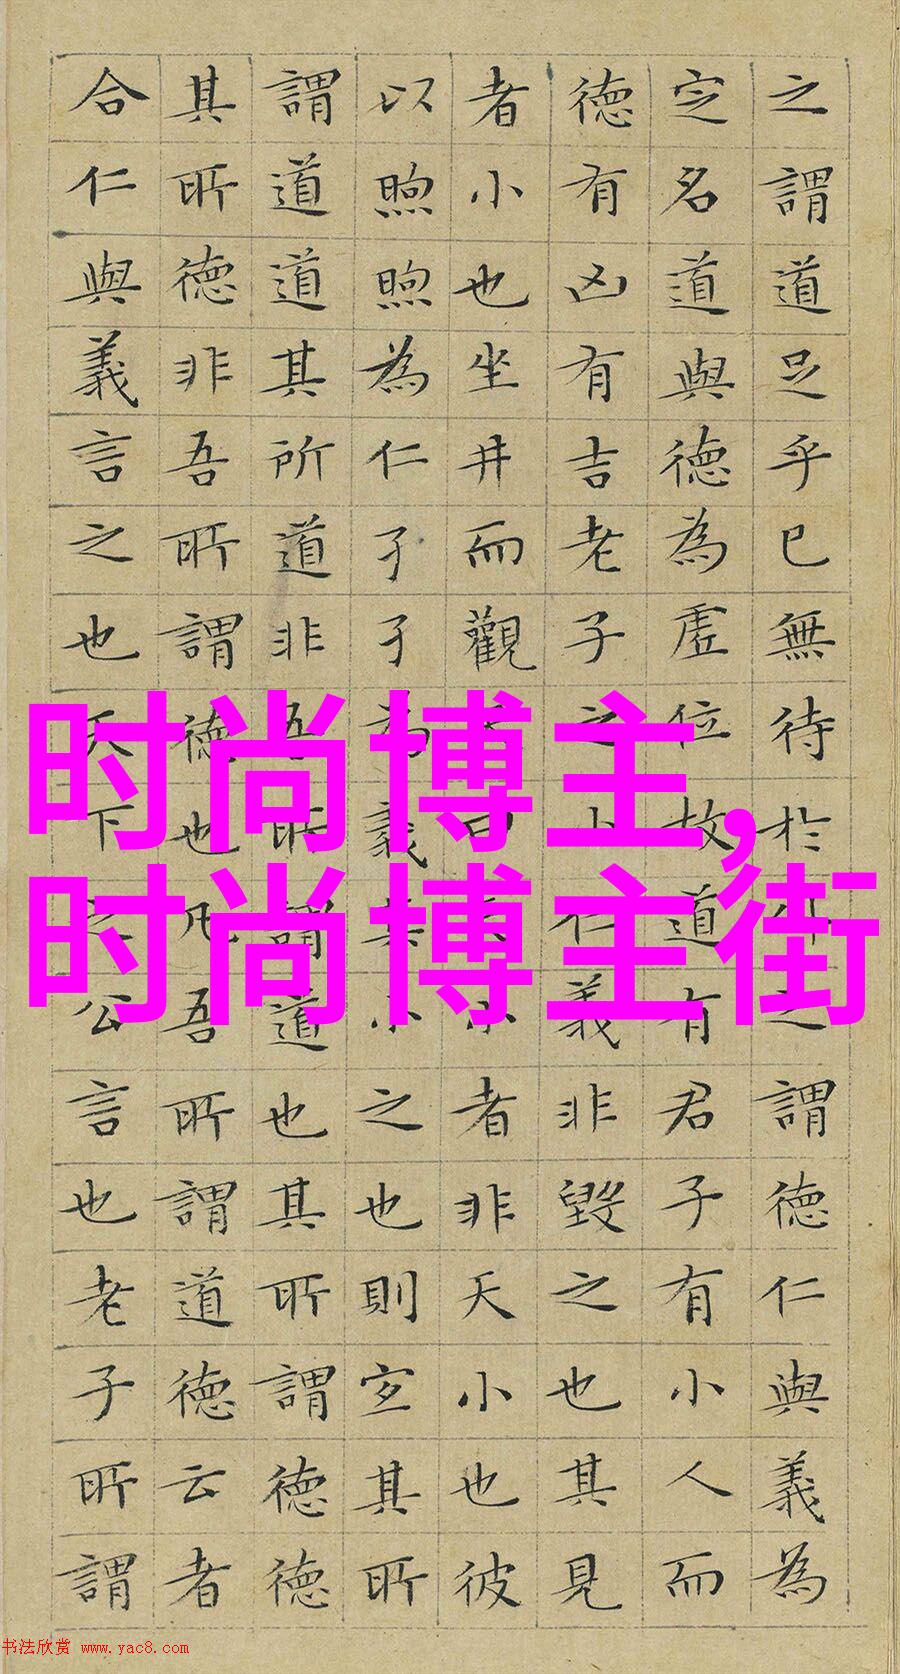 之謂道足乎已無待於外之謂德仁與義為
定名道與德為虛位故道有君子有小人而
德有凶有吉老子之小仁義非毀之也其見
者小也坐井而觀天曰天小者非天小也彼
以煦煦為仁孑孑為義其小之也則宜其所
謂道道其所道非吾所謂道也其所謂德德
其所德非吾所謂德也凡吾所謂道德云者
合仁與義言之也天下之公言也老子所謂
时尚博主,
时尚博主街
书法欣赏 www.yac8.com